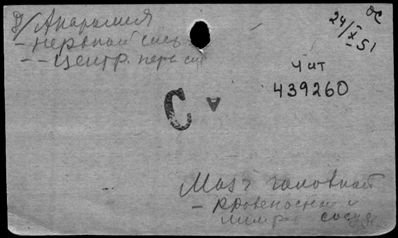 Д/Анатомия
- нервной сист
-- центр. нерв сис
24/X 51
ОС
Чит
439260
С А
Мозг головной
- кровеносн и
лимф сосуд